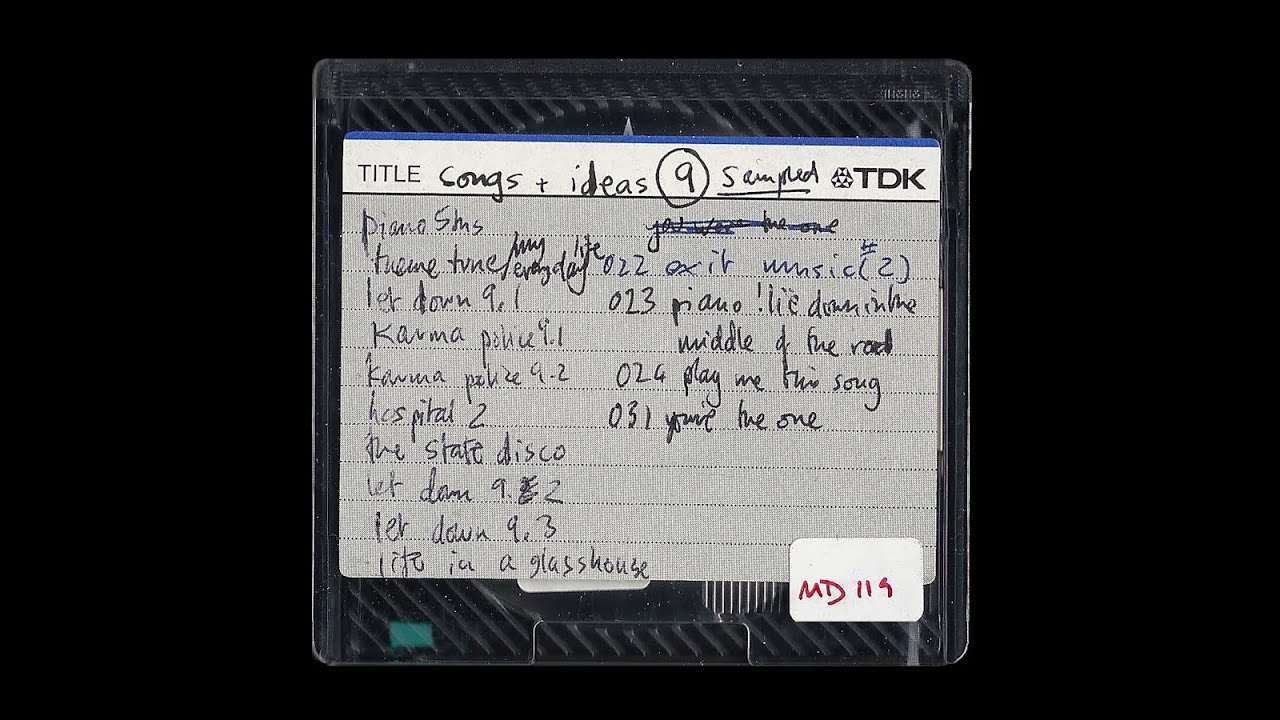 TITLE songs + ideas 9 sampled TDK
piano 5ths
theme tune/my everyday life
let down 9.1
Karma police 9.1
karma police 9.2
hospital 2
the state disco
let down 9.2
let down 9.3
life in a glasshouse
you were the one
022 exit music (#2)
023 piano ! lie down in the
middle of the road
024 play me this song
031 you're the one
MD 119